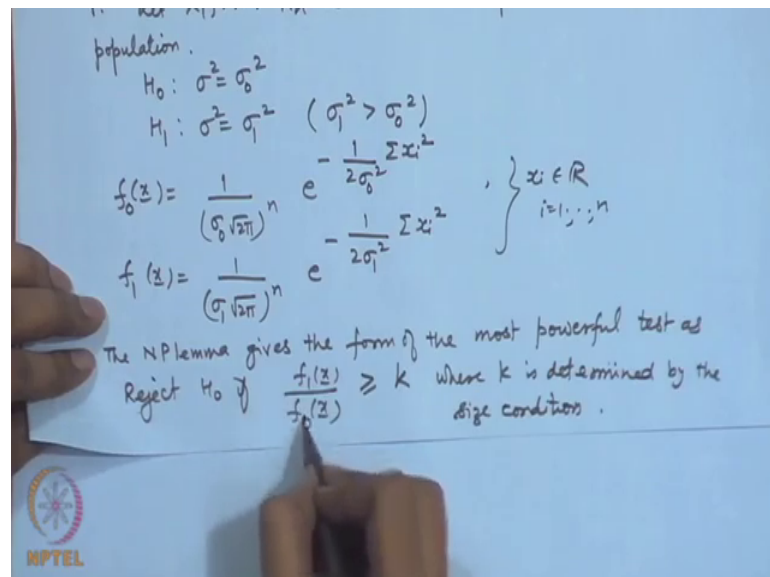 population.
H₀ : σ² = σ₀²
H₁ : σ² = σ₁² ( σ₁² > σ₀² )
f₀(x) = 1/(σ₀ √2π)ⁿ e^(- 1/(2σ₀²) Σ xᵢ²) , } xᵢ ∈ ℝ
i=1,..,n
f₁(x) = 1/(σ₁ √2π)ⁿ e^(- 1/(2σ₁²) Σ xᵢ²)
The NP lemma gives the form of the most powerful test as
Reject H₀ if f₁(x)/f₀(x) ≥ k where k is determined by the
size condition.
NPTEL